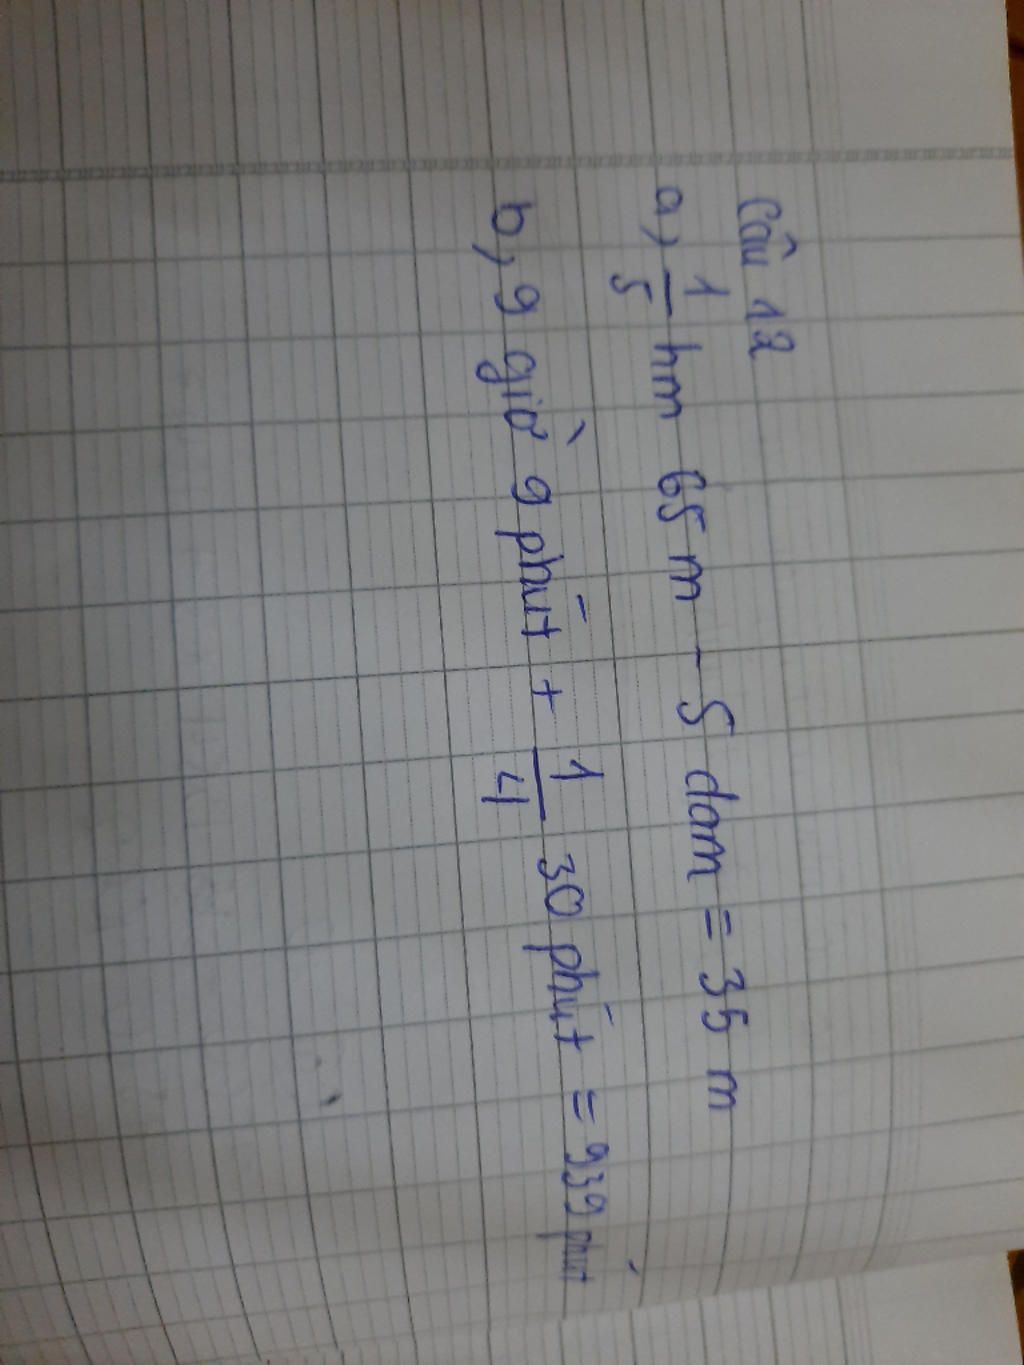 Câu 12
a, 1/5 hm 65 m - 5 dam = 35 m
b, 9 giờ 9 phút + 1/4 30 phút = 939 phút